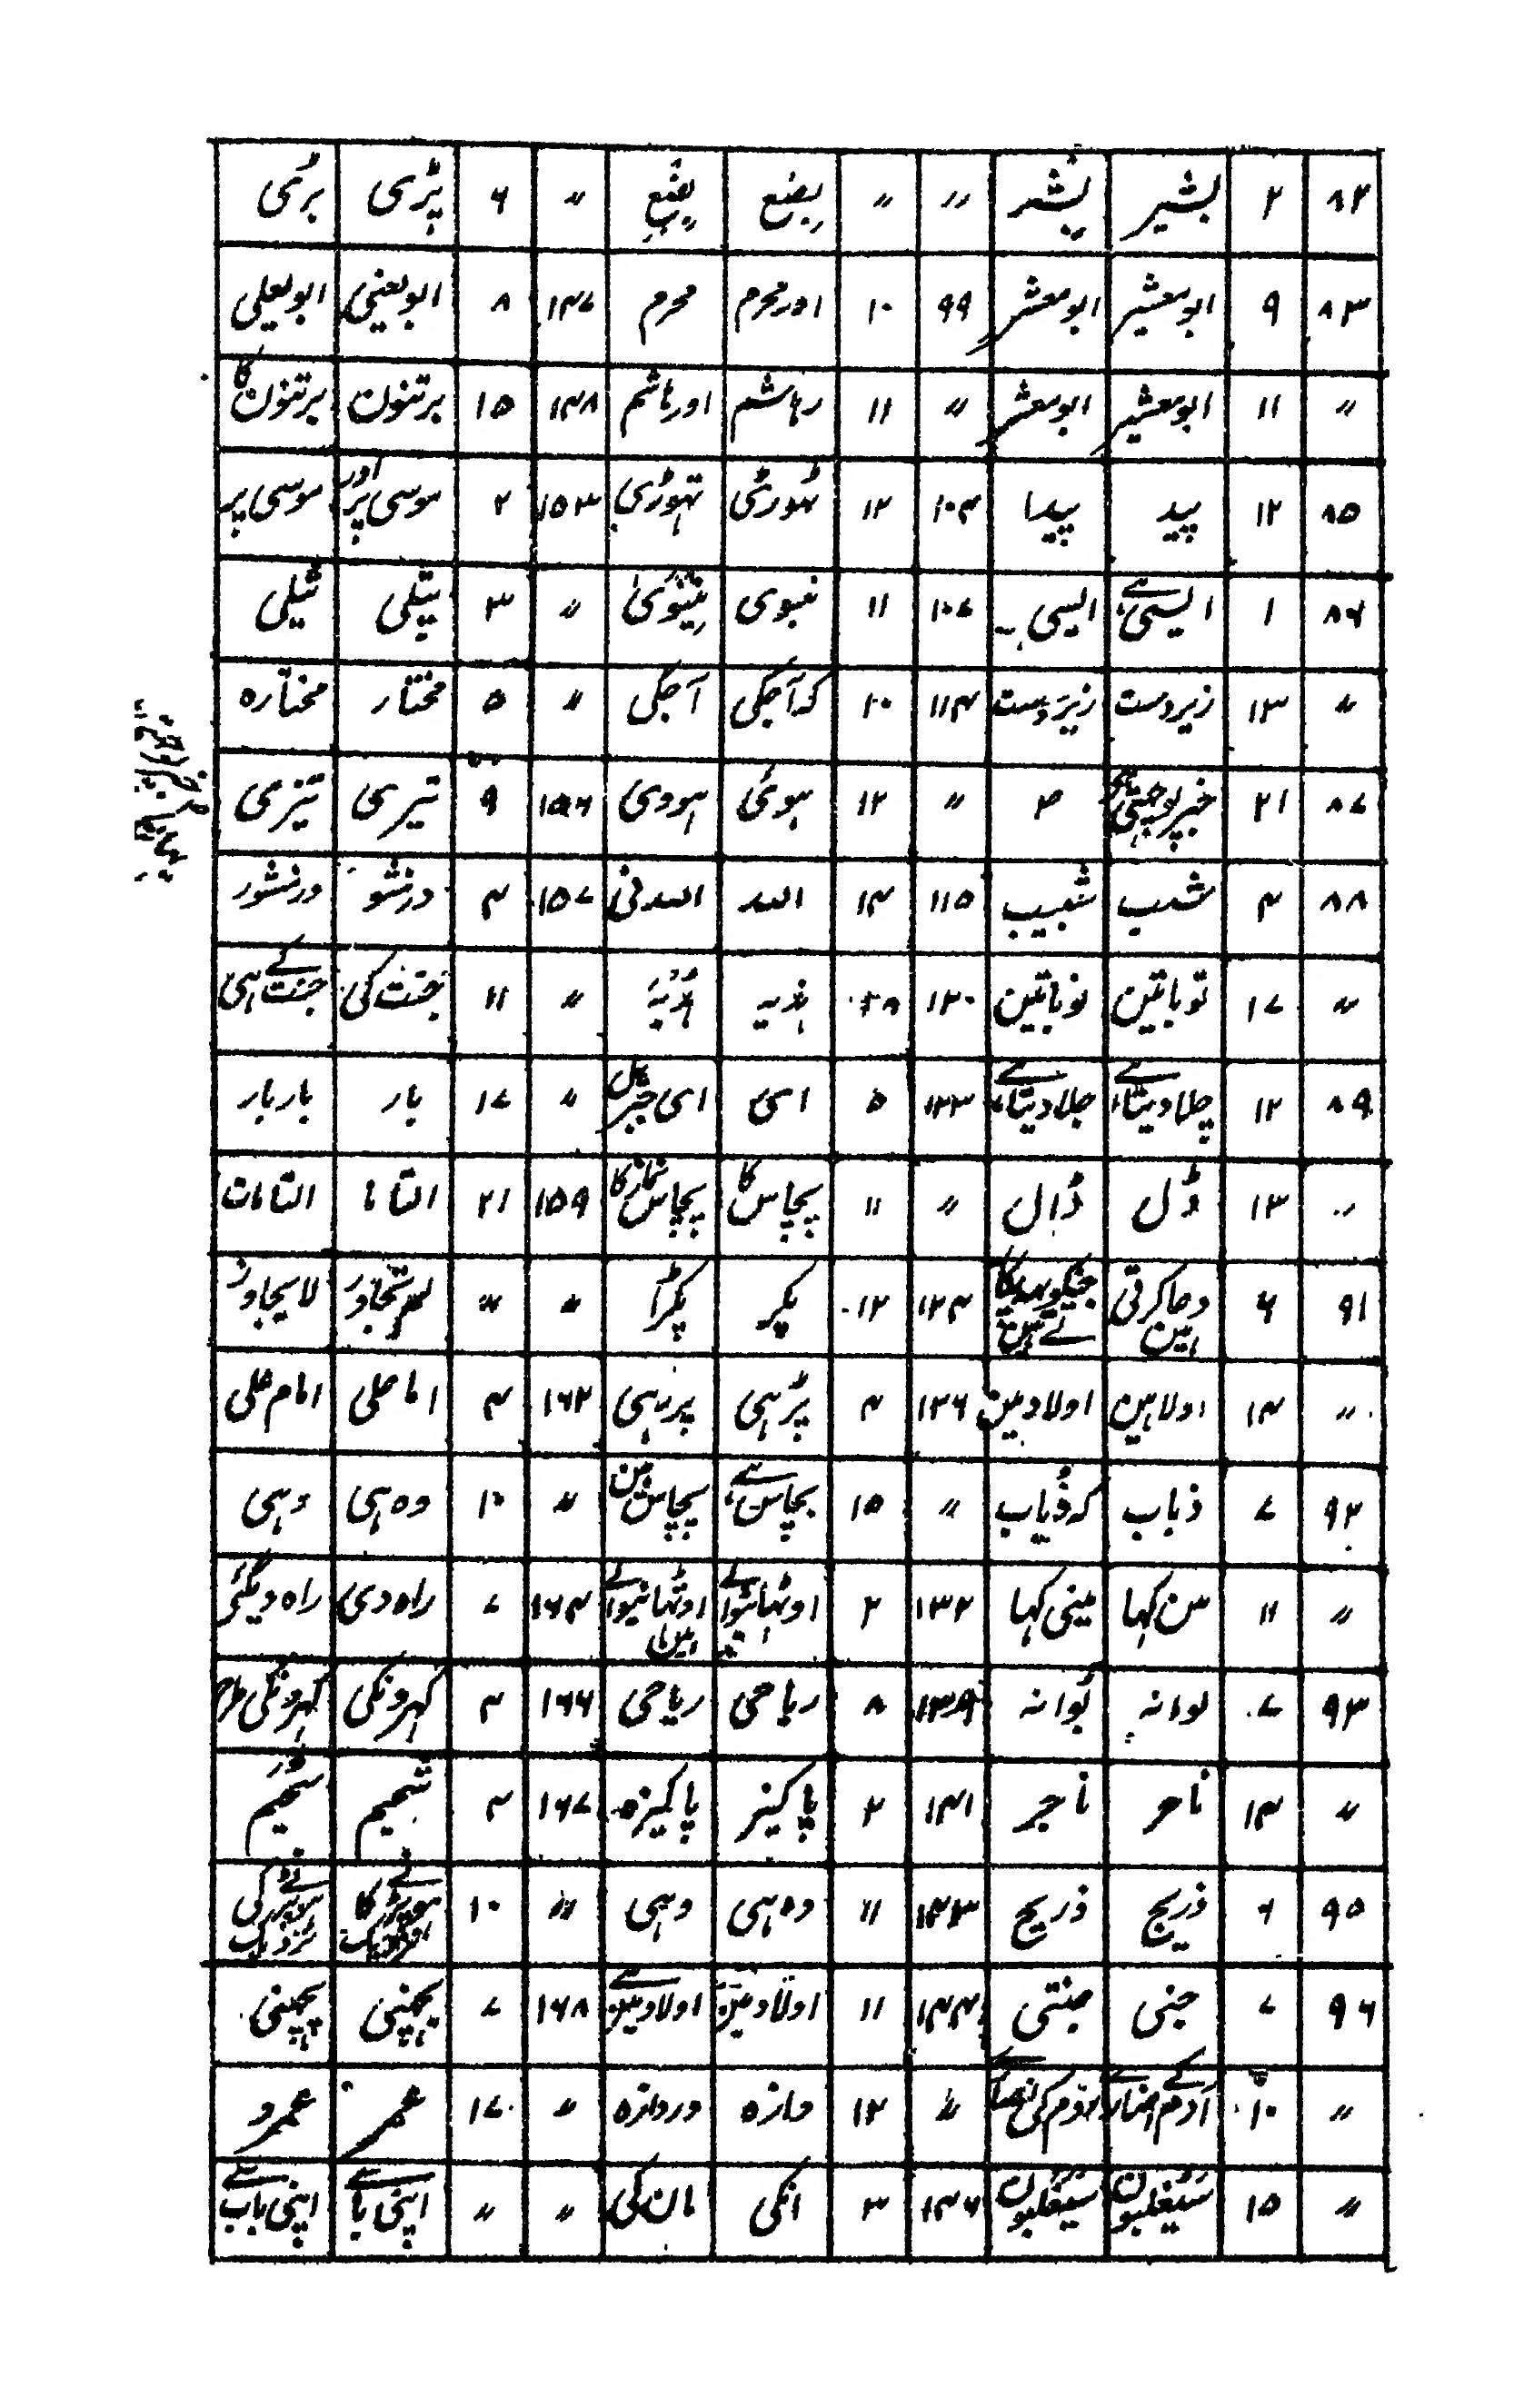 ۸۲ ۲ بشیر بشر 〃 〃 بضع بضع 〃 ۶ پڑی بری
۸۳ ۹ ابومعشیر ابومعشر ۹۹ ۱۰ اور محرم محرم ۱۴۷ ۸ ابویعنی ابویعلی
〃 ۱۱ ابومعشیر ابومعشر 〃 ۱۱ رہاشم اور ہاشم ۱۴۸ ۱۵ برتنون برتنون کا
۸۵ ۱۲ پید پیدا ۱۰۴ ۱۲ ٹہورٹی تہوڑی ۱۵۳ ۲ موسی اور پر موسی پر
۸۶ ۱ ایسی ہے ایسی ۱۰۷ ۱۱ نیوی نینوی 〃 ۳ پتلی ثیلی
〃 ۱۳ زیردست زیردست ۱۱۴ ۱۰ کہ آجکی آجکی 〃 ۵ مختار مختارہ
۸۷ ۲۱ خبر پوچہتی 〃 ۱۲ ہوئی ہودی ۱۵۶ ۹ تیری تیزی
۸۸ ۴ شعب شبیب ۱۱۵ ۱۴ اللہ اللہ فی ۱۵۷ ۴ درنشو درنشور
〃 ۱۷ توباتین نوباتین ۱۲۰ ۸ ہذیہ ہذیہ 〃 ۱۱ جنت کی جنت کے ہی
۸۹ ۱۲ چلا دیتا ہے جلا دیتا ہے ۱۲۳ ۵ اسی اسی 〃 ۱۷ بار بار بار
〃 ۱۳ ڈل ڈال 〃 ۱۱ پچاس کا پچاس نماز کا ۱۵۹ ۲۱ التاما التامات
۹۱ ۶ دعا کرتی ہین ۱۲۴ ۱۲ پکر پکڑا 〃 〃 لایجاوز
〃 ۱۴ اولاہین اولاد مین ۱۲۶ ۴ پڑہی پرہی ۱۶۲ ۴ اماعلی امام علی
۹۲ ۷ ذباب کہ ذباب 〃 ۱۵ پچاس ہے پچاس ہین 〃 ۱۰ وہ ہی وہی
〃 ۱۱ سن کہا مینی کہا ۱۳۲ ۲ اوٹہانیوالے اوٹہانیوالے ہین ۱۶۴ ۷ راہ دی راہ دیگئی
۹۳ ۷ لوانہ بوانہ ۱۳۹ ۸ ریاحی ریاحی ۱۶۶ ۴ کہرونکی کہرونکی طرح
〃 ۱۴ ناحر ناجر ۱۴۱ ۲ پاکیز پاکیزہ ۱۶۷ ۴
۹۵ ۶ ذریج ذریح ۱۴۳ ۱۱ وہ ہی وہی 〃 ۱۰
۹۶ ۷ جنی جنتی ۱۴۴ ۱۱ اولاد مین اولاد مین سے ۱۶۸ ۷ پہچنی پہچنی
〃 ۱۰ 〃 ۱۲ دازہ دروازہ 〃 ۱۷ عمر عمرو
〃 ۱۵ سیغلبون سیغلبون ۱۴۶ ۳ انکی مان کی 〃 〃 اپنی با سے اپنی باپ سے